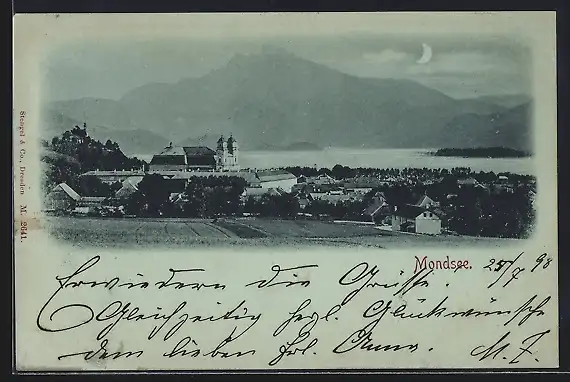 Stengel & Co., Dresden M. 2641.
Mondsee. 25/7 98
Erwiedern die Grüsse.
Gleichzeitig herzl. Glückwünsche
dem lieben Frl. Anna. M. F.